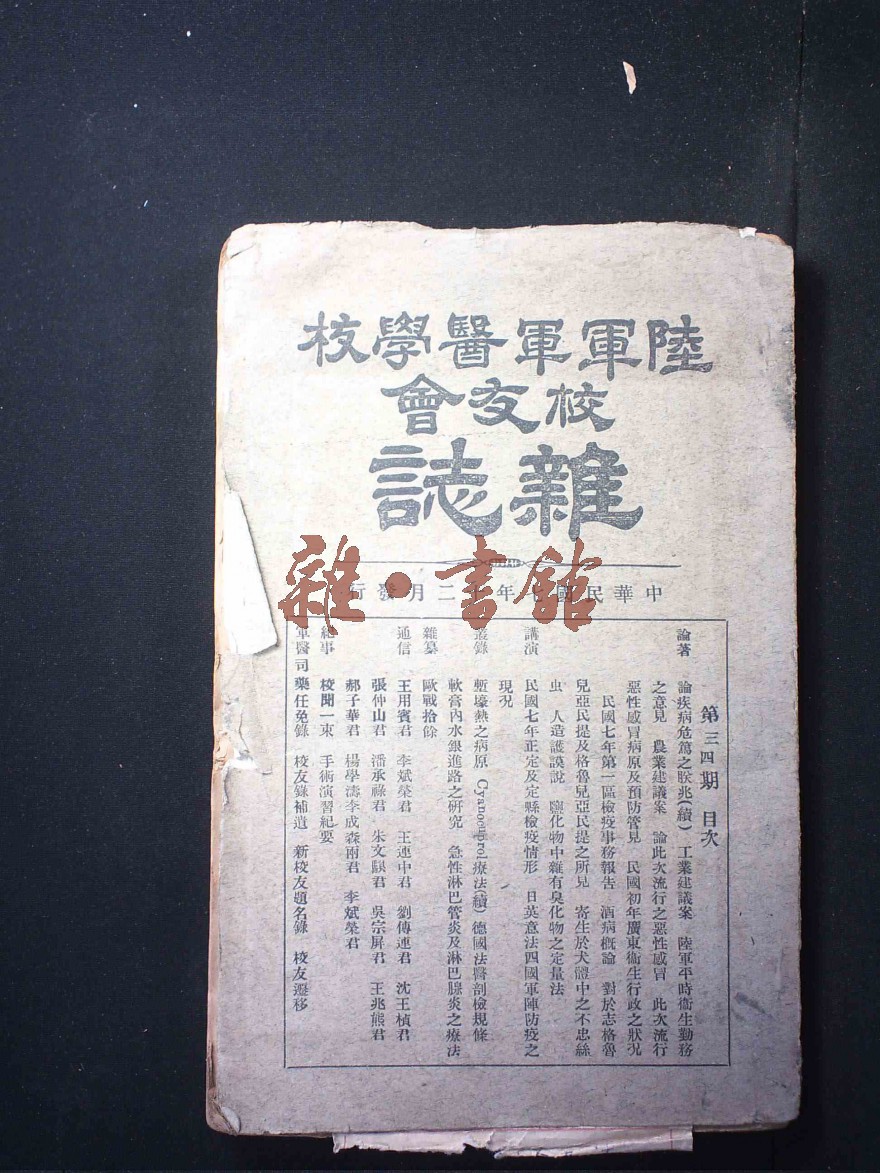 陸軍軍醫學校
校友會
雜誌
雜·書館
中華民國七年十二月發行
第三四期 目次
論著 論疾病危篤之朕兆(續) 工業建議案 陸軍平時衞生勤務
之意見 農業建議案 論此次流行之惡性感冒 此次流行
惡性感冒病原及預防管見 民國初年廣東衞生行政之狀况
民國七年第一區檢疫事務報告 酒病概論 對於志格魯
兒亞民提及格魯兒亞民提之所見 寄生於犬體中之不忠絲
虫 人造護謨說 鹽化物中雜有臭化物之定量法
講演 民國七年正定及定縣檢疫情形 日英意法四國軍陣防疫之
現况
叢錄 塹壕熱之病原 Cyanocuprol療法(續) 德國法醫剖檢規條
軟膏內水銀進路之研究 急性淋巴管炎及淋巴腺炎之療法
雜纂 歐戰拾餘
通信 王用賓君 李斌榮君 王連中君 劉傳連君 沈王楨君
張仲山君 潘承祿君 朱文騏君 吳宗屏君 王兆熊君
郝子華君 楊學濤李成森兩君 李斌榮君
紀事 校聞一束 手術演習紀要
軍醫司藥任免錄 校友錄補遺 新校友題名錄 校友遷移